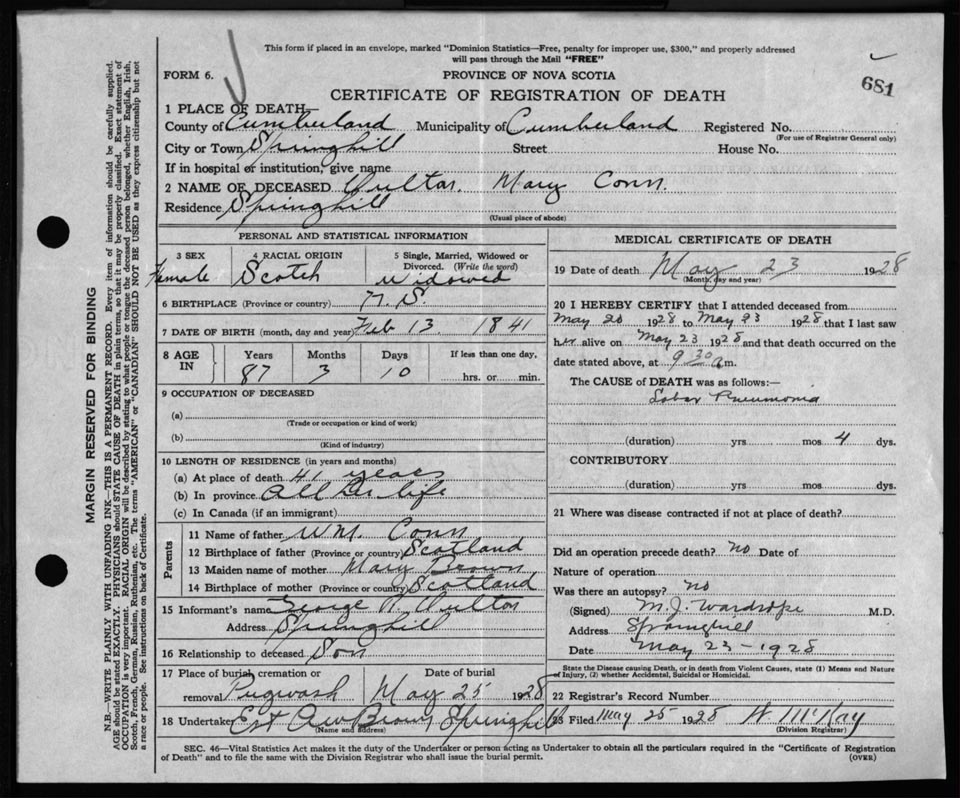 This form if placed in an envelope, marked "Dominion Statistics—Free, penalty for improper use, $300," and properly addressed
will pass through the Mail "FREE"
681
FORM 6.
PROVINCE OF NOVA SCOTIA
CERTIFICATE OF REGISTRATION OF DEATH
1 PLACE OF DEATH—
County of Cumberland Municipality of Cumberland Registered No.
(For use of Registrar General only)
City or Town Springhill Street House No.
If in hospital or institution, give name
2 NAME OF DECEASED Mary Conn.
Residence Springhill
(Usual place of abode)
PERSONAL AND STATISTICAL INFORMATION
3 SEX 4 RACIAL ORIGIN 5 Single, Married, Widowed or
Divorced. (Write the word)
Female Scotch Widowed
6 BIRTHPLACE (Province or country) N. S.
7 DATE OF BIRTH (month, day and year) Feb 13. 1841
8 AGE IN Years Months Days If less than one day,
87 3 10 hrs. or min.
9 OCCUPATION OF DECEASED
(a)
(Trade or occupation or kind of work)
(b)
(Kind of industry)
10 LENGTH OF RESIDENCE (in years and months)
(a) At place of death 41 years
(b) In province All her life
(c) In Canada (if an immigrant)
Parents
11 Name of father WM. Conn
12 Birthplace of father (Province or country) Scotland
13 Maiden name of mother Mary Brown
14 Birthplace of mother (Province or country) Scotland
15 Informant's name George
Address Springhill
16 Relationship to deceased Son
17 Place of burial, cremation or Date of burial
removal Pugwash May 25 1928
18 Undertaker Est A W Brown Springhill
(Name and address)
MEDICAL CERTIFICATE OF DEATH
19 Date of death May 23 1928
(Month, day and year)
20 I HEREBY CERTIFY that I attended deceased from
May 20 1928 to May 23 1928 that I last saw
her alive on May 23 1928 and that death occurred on the
date stated above, at 9 30 a m.
The CAUSE of DEATH was as follows:—
Lobar Pneumonia
(duration) yrs mos 4 dys.
CONTRIBUTORY
(duration) yrs mos dys.
21 Where was disease contracted if not at place of death?
Did an operation precede death? no Date of
Nature of operation
Was there an autopsy? no
(Signed) M. J. Wardrope M.D.
Address Springhill
Date May 23 - 1928
State the Disease causing Death, or in death from Violent Causes, state (1) Means and Nature
of Injury, (2) whether Accidental, Suicidal or Homicidal.
22 Registrar's Record Number
23 Filed May 25 1928 McKay
(Division Registrar)
SEC. 46—Vital Statistics Act makes it the duty of the Undertaker or person acting as Undertaker to obtain all the particulars required in the "Certificate of Registration
of Death" and to file the same with the Division Registrar who shall issue the burial permit.
(OVER)
MARGIN RESERVED FOR BINDING
N.B.—WRITE PLAINLY WITH UNFADING INK—THIS IS A PERMANENT RECORD. Every item of information should be carefully supplied.
AGE should be stated EXACTLY. PHYSICIANS should STATE CAUSE OF DEATH in plain terms, so that it may be properly classified. Exact statement of
OCCUPATION is very important. RACIAL ORIGIN will be described by stating to what people or tongue the deceased person belonged, whether English, Irish,
Scotch, French, German, Russian, Ruthenian, etc. The terms "AMERICAN" or "CANADIAN" SHOULD NOT BE USED as they express citizenship but not
a race or people. See instructions on back of Certificate.